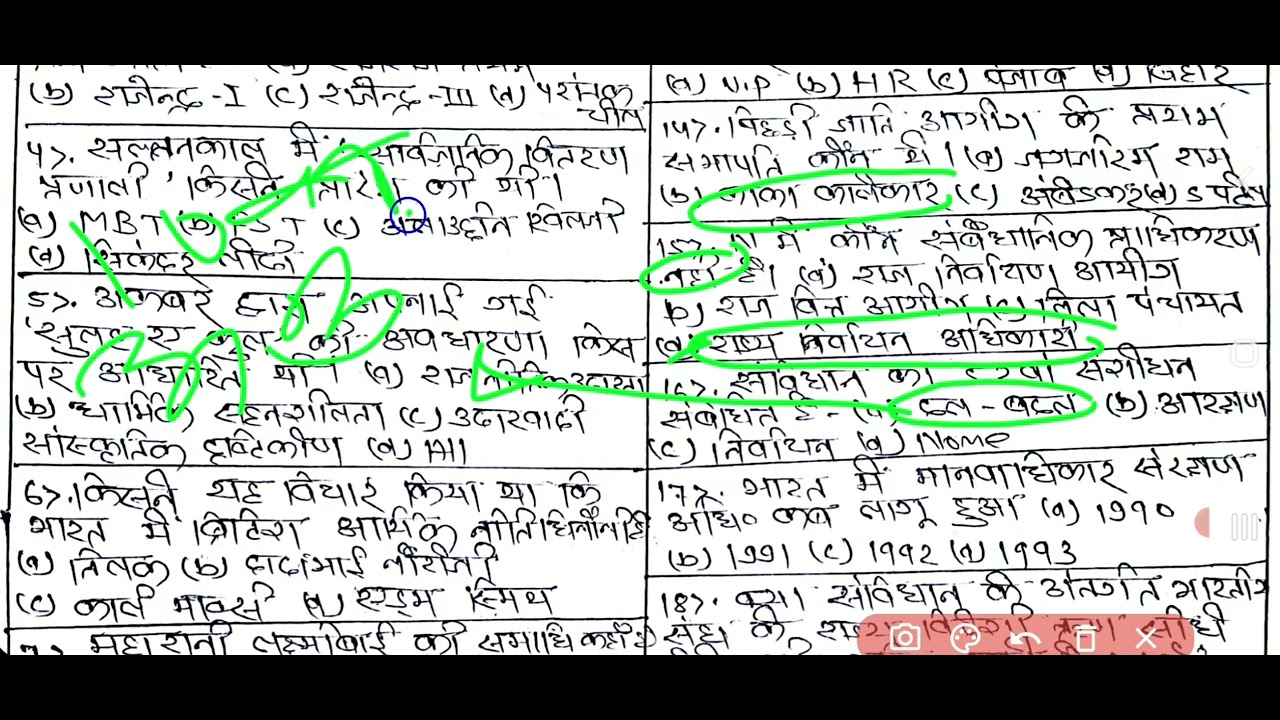 (b) राजेन्द्र-I (c) राजेन्द्र-III (d) परांतक
चोल
4>. सल्तनकाल में 'सार्वजनिक वितरण
प्रणाली' किसने की थी।
(a) MBT (b) (c) अलाउद्दीन खिलजी
(d) सिकंदर लोदी
5>. अकबर द्वारा अपनाई गई
'सुलह ए कुल' की अवधारणा किस
पर आधारित थी। (a) राजनीतिक उदारता
(b) धार्मिक सहनशीलता (c) उदारवादी
सांस्कृतिक दृष्टिकोण (d) All
6>. किसने यह विचार किया था कि
भारत में ब्रिटिश आर्थिक नीति घिनौनी है
(a) तिलक (b) दादाभाई नौरोजी
(c) कार्ल मार्क्स (d) एडम स्मिथ
महारानी लक्ष्मीबाई की समाधि कहाँ है
(a) U.P (b) HR (c) पंजाब (d) बिहार
14>. पिछड़ी जाति आयोग के प्रथम
सभापति कौन थे। (a) जगजीवन राम
(b) काका कालेकर (c) अंबेडकर (d) S पटेल
15>. में कौन संवैधानिक प्राधिकरण
नहीं है। (a) राज्य निर्वाचन आयोग
(b) राज्य वित्त आयोग (c) जिला पंचायत
(d) राज्य निर्वाचन अधिकारी
16>. संविधान का संशोधन
संबंधित है- (a) दल-बदल (b) आरक्षण
(c) निर्वाचन (d) None
17>. भारत में मानवाधिकार संरक्षण
अधि० कब लागू हुआ (a) 1990
(b) 1991 (c) 1992 (d) 1993
18>. क्या संविधान के अंतर्गत भारतीय
संघ के